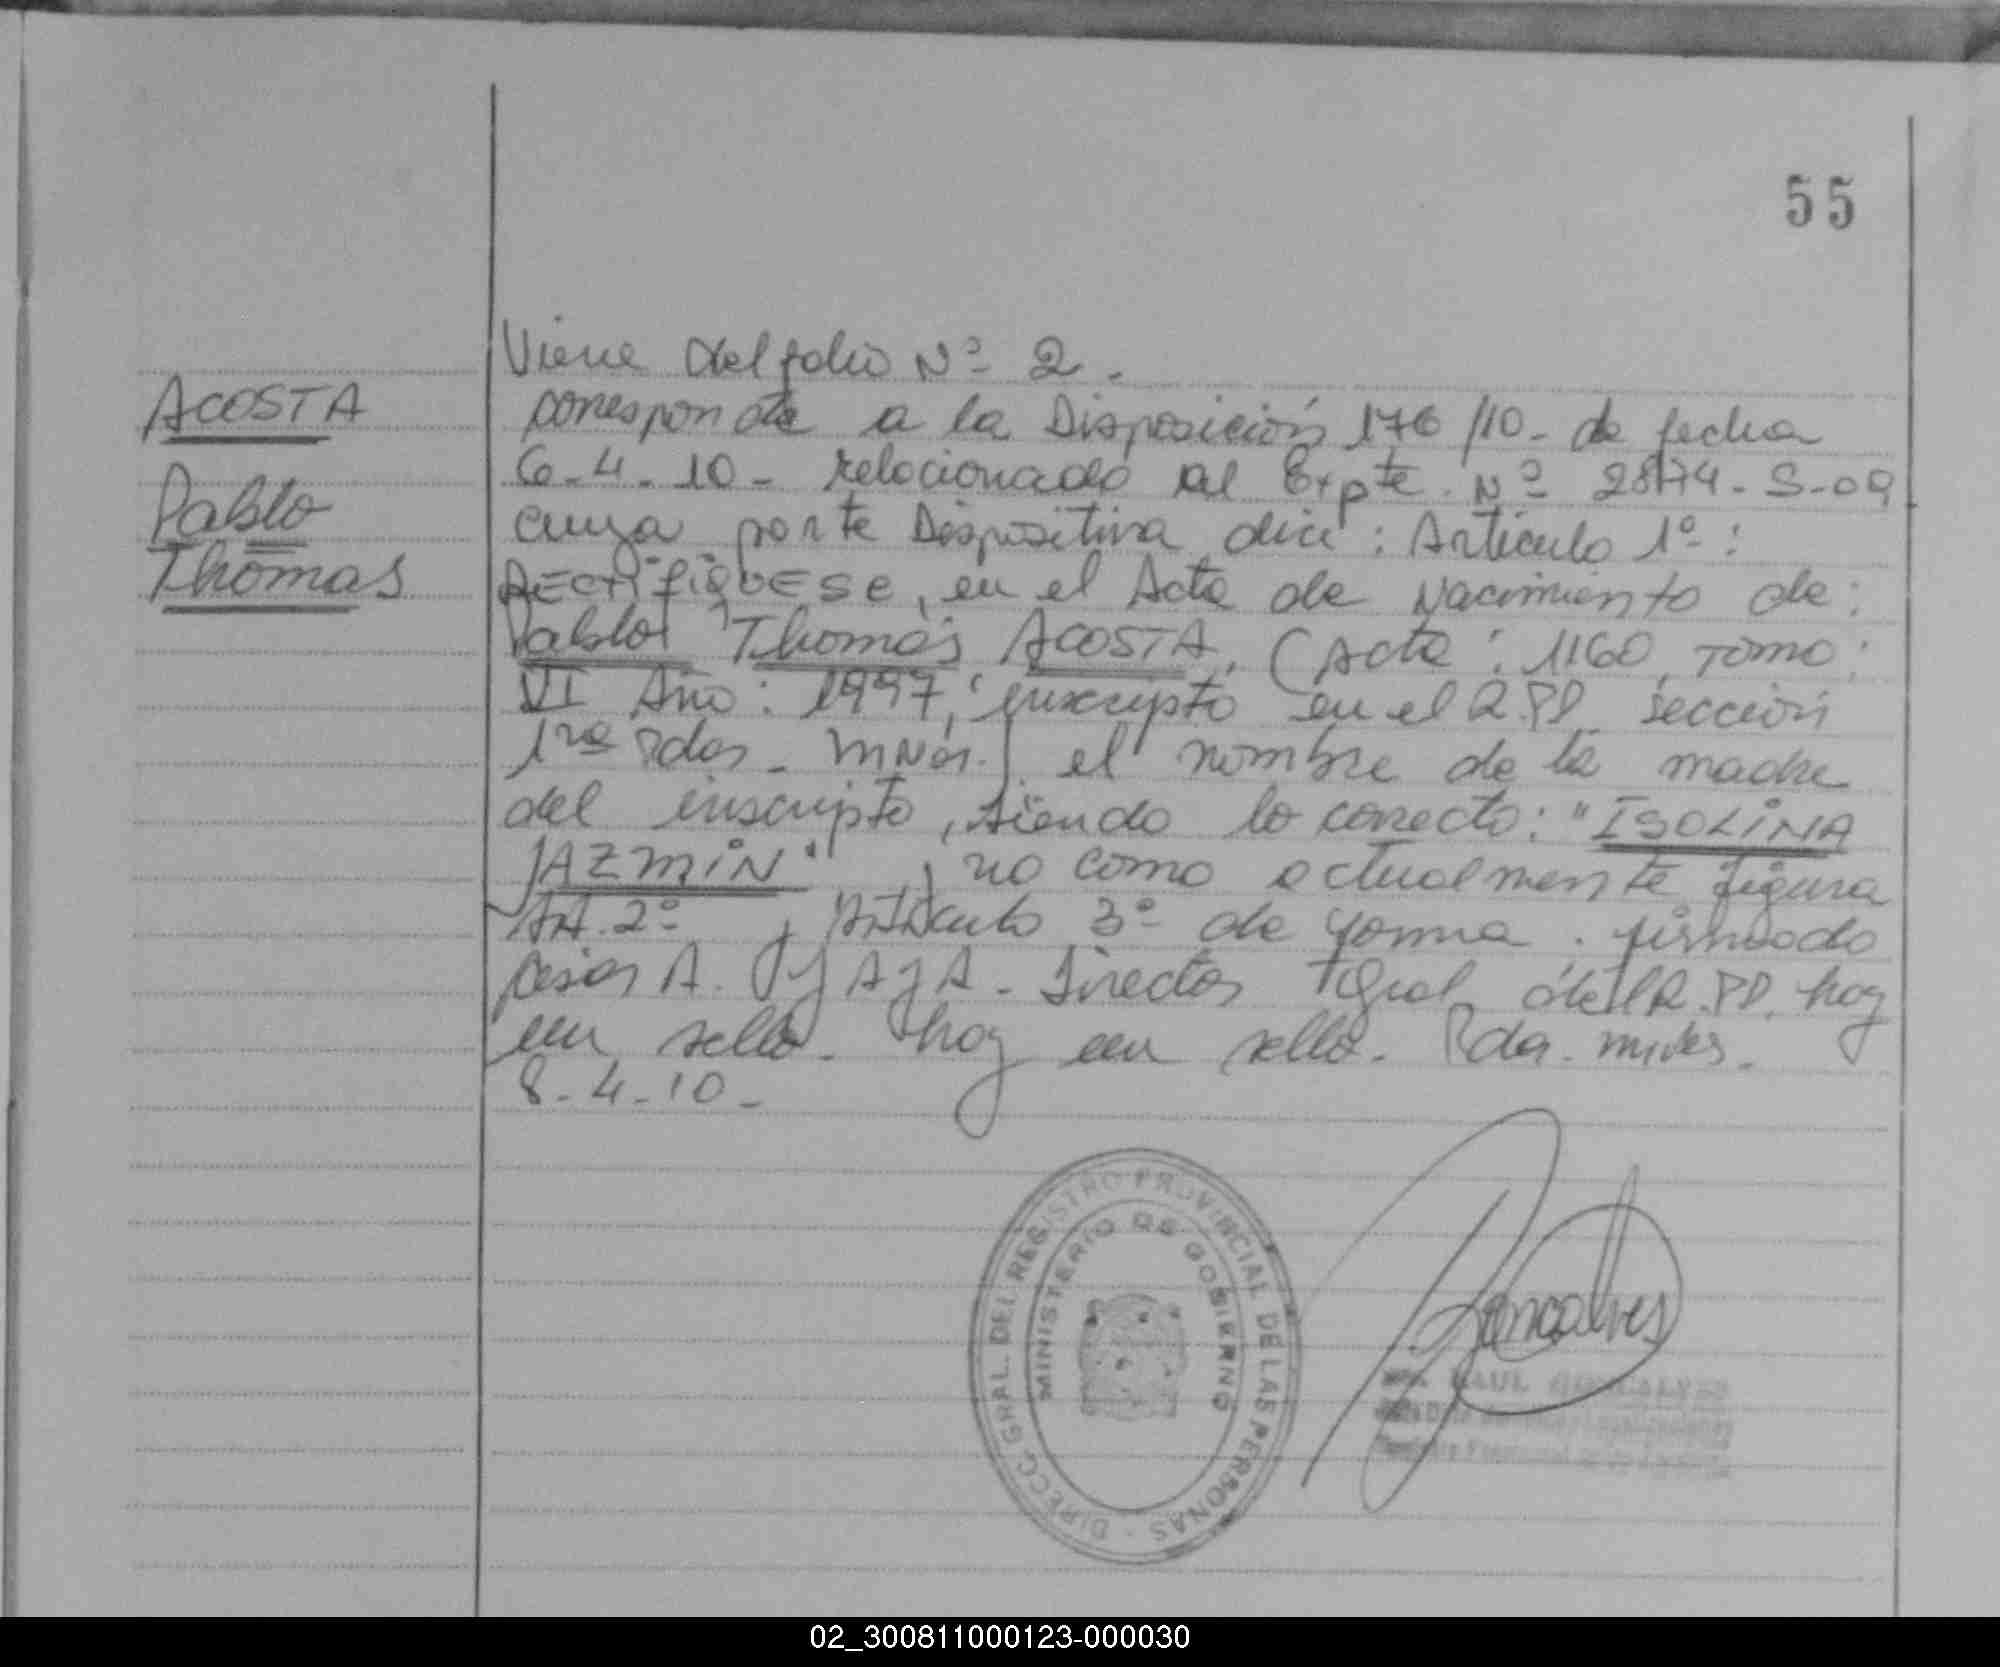 55
Viene del folio Nº 2.
ACOSTA
corresponde a la Disposición 176/10- de fecha
6-4-10- relacionado al Expte. Nº 2874-S-09
Pablo
cuya parte Dispositiva dice: Artículo 1º:
Thomas
RECTifiQUESE, en el Acta de Nacimiento de:
Pablo Thomas ACOSTA, (Acta: 1160, Tomo:
VI Año: 1997, inscripto en el R.PP. sección
1ra Pdas - Mnes.) el nombre de la madre
del inscripto, siendo lo correcto: "ISOLINA
JAZMIN" y no como actualmente figura
Art. 2º y Artículo 3º de forma. firmado
Cesar A. Director Gral. del R.PP. hay
un sello. hay un sello. Pda. Mnes.
8-4-10-
DIRECC. GRAL. DEL REGISTRO PROVINCIAL DE LAS PERSONAS
MINISTERIO DE GOBIERNO
Goncalves
RAUL GONCALVES
02_300811000123-000030